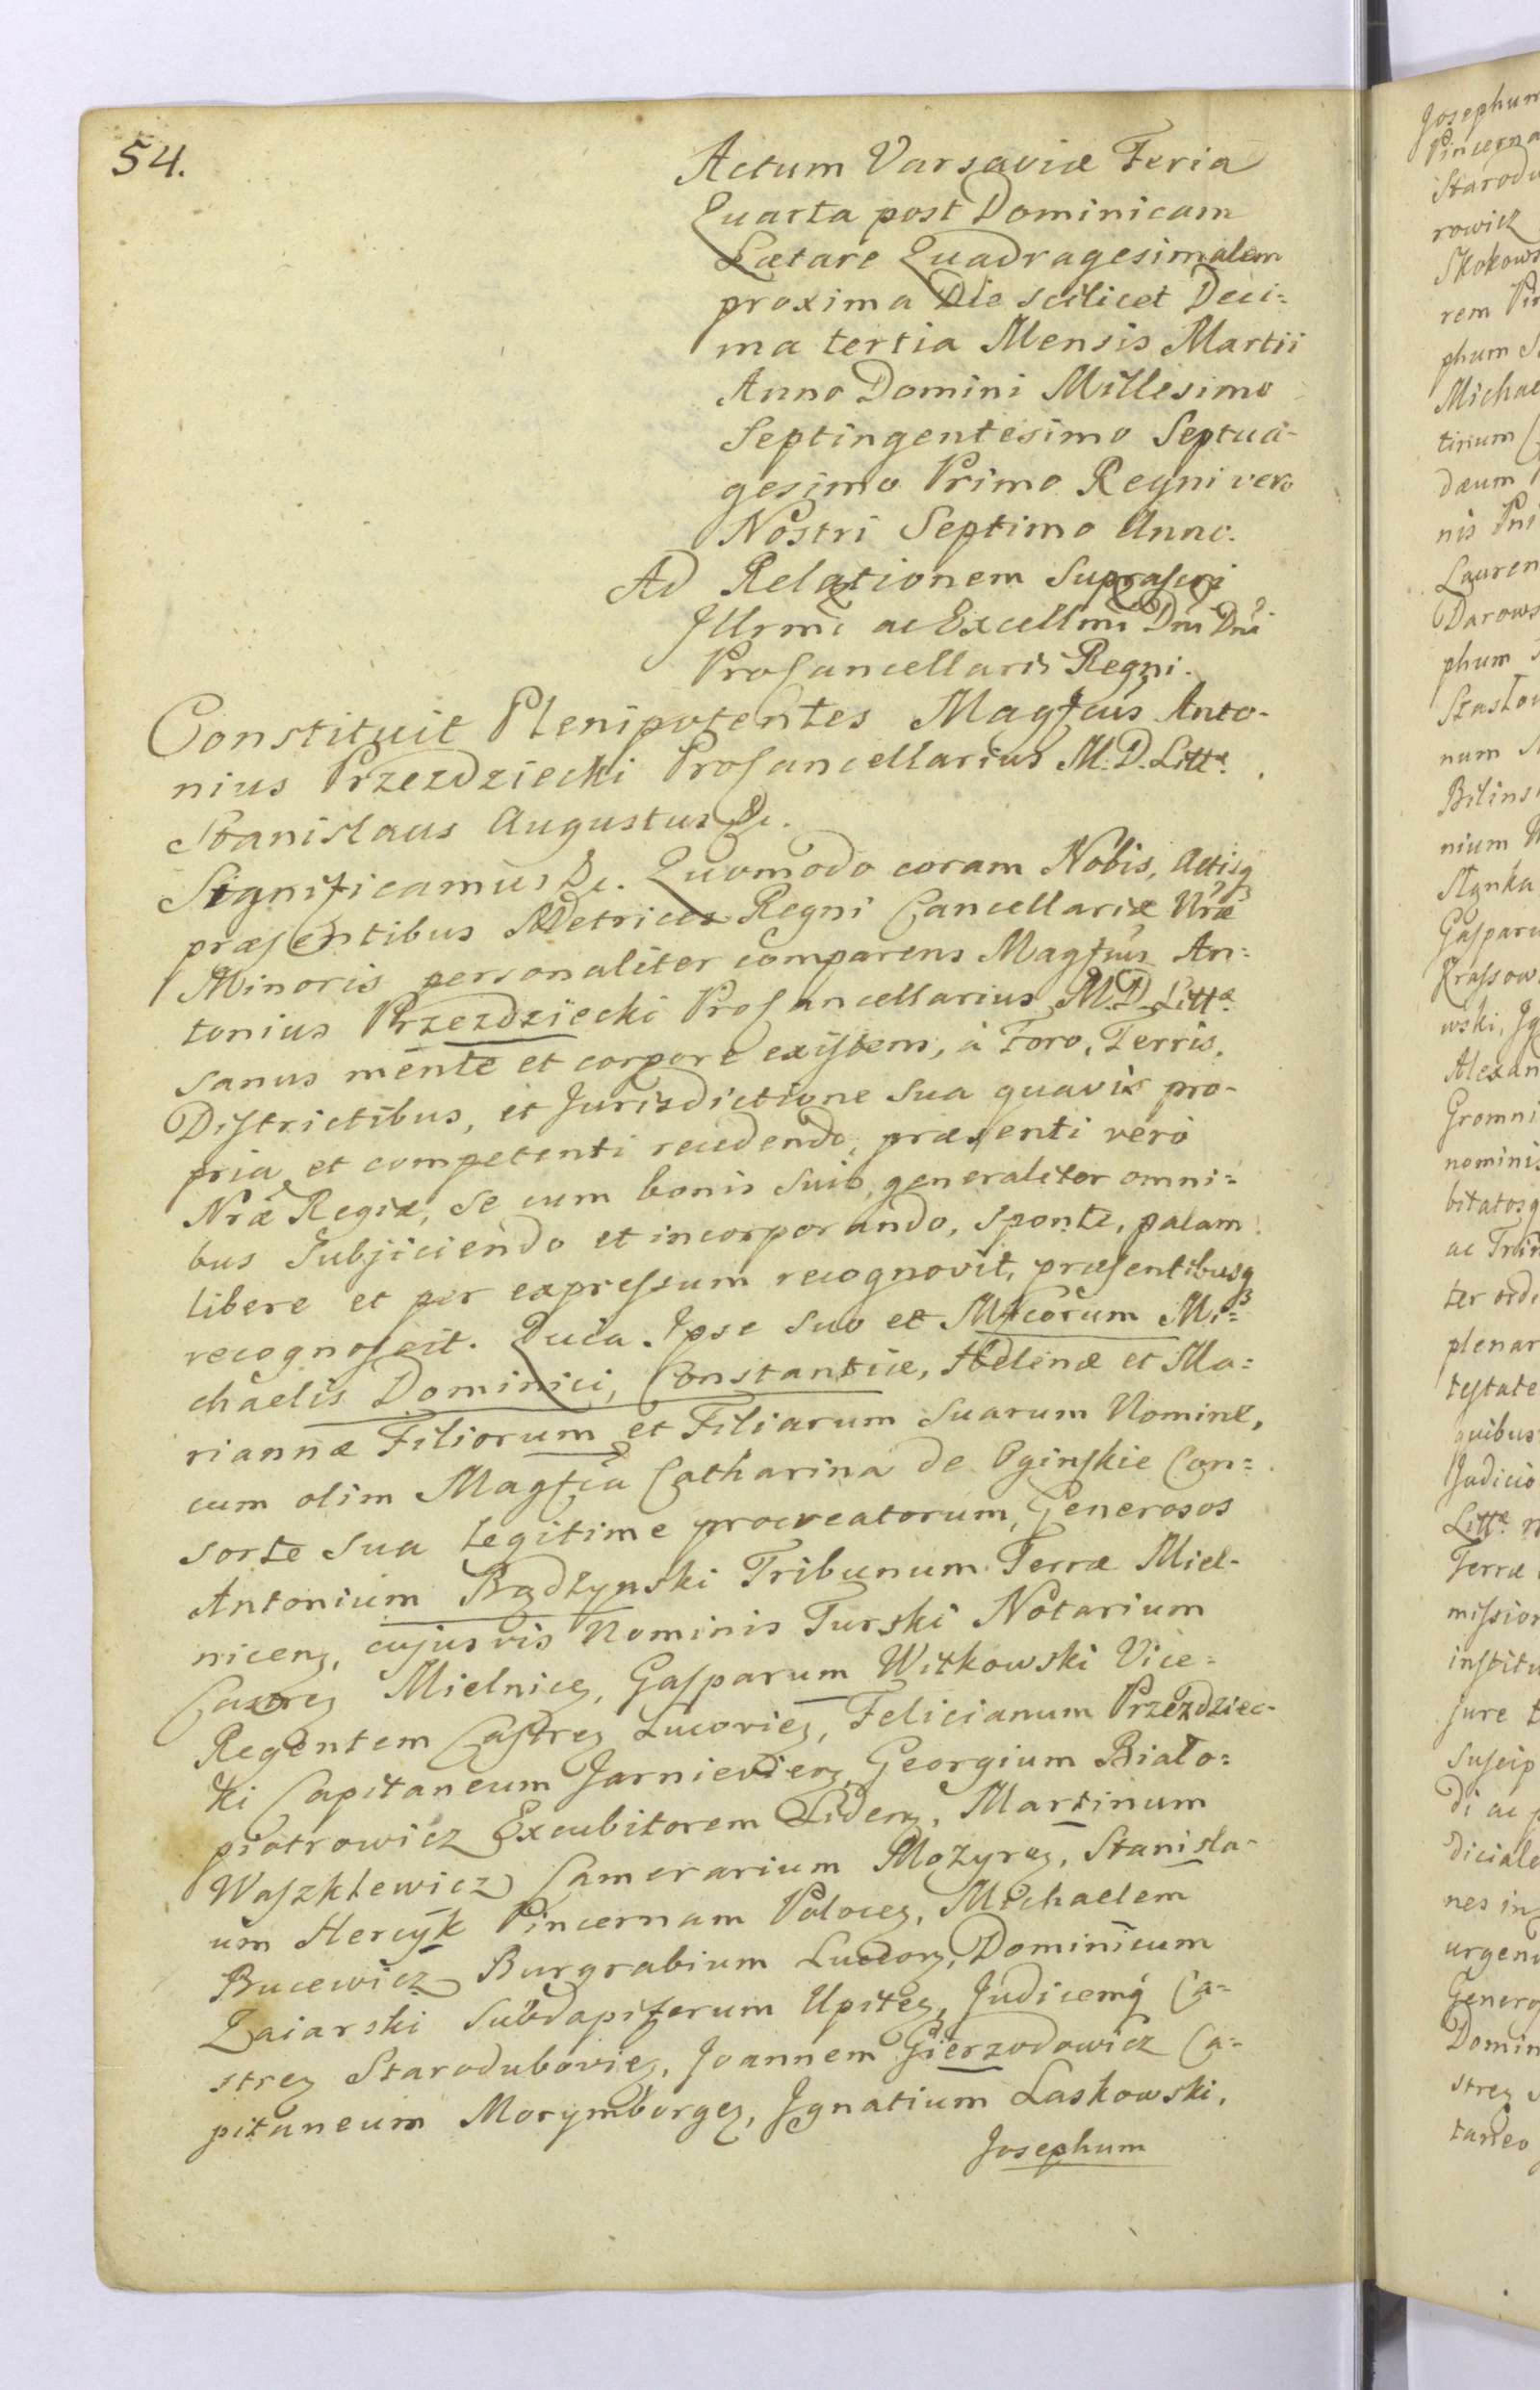 54.
Actum Varsaviæ Feria
Quarta post Dominicam
Lætare Quadragesimalem
proxima Die scilicet Deci=
ma tertia Mensis Martii
Anno Domini Millesimo
Septingentesimo Septua-
gesimo Primo Regni vero
Nostri Septimo Anno.
Ad Relationem Suprascri
Jllrmi ac Excellmi Dni Dni
ProCancellarii Regni.
Constituit Plenipotentes Magfcus Anto-
nius Przezdziecki ProCancellarius M.D. Littæ.
Stanislaus Augustus &c.
Significamus &c. Quomodo coram Nobis, Actisq3
præsentibus Metrices Regni Cancellariæ Nræ
Minoris personaliter comparens Magfcus An=
tonius Przezdziecki ProCancellarius M.D. Littæ.
sanus mente et corpore existens, à Foro, Terris,
Districtibus, et Jurisdictione sua quavis pro-
pria et competenti recedendo, præsenti verò
Nræ Regiæ, se cum bonis suis generaliter omni=
bus Subjiciendo et incorporando, sponte, palam
libere et per expressum recognovit, præsentibusq3
recognoscit. Quia Ipse suo et Mfcorum Mi=
chaelis Dominici, Constantiæ, Helenæ et Ma=
riannæ Filiorum et Filiarum suarum Nomine,
cum olim Magfca Catharina de Oginskie Con=
sorte sua legitime procreatorum, Generosos
Antonium Bądzynski Tribunum Terræ Miel-
nicen, cujusvis Nominis Turski Notarium
Castren Mielnicen, Gasparum Witkowski Vice=
Regentem Castren Lucovien, Felicianum Przezdziec-
ki Capitaneum Jarnievien, Georgium Biało=
piotrowicz Excubitorem Liden, Martinum
Waszklewicz Camerarium Mozyren, Stanisla-
um Hercyk Pincernam Polocen, Michaelem
Bucewicz Burgrabium Luceor, Dominicum
Zaiarski Subdapiferum Upiten, Judicemq Ca=
stren Starodubovien, Joannem Gierzodowicz Ca=
pitaneum Morymborgen, Ignatium Laskowski,
Josephum
Josephum
Pincerna
Starodu
rowicz
Skokows
rem
phum
Michae
tinum
dæum
nis
Lauren
Darows
phum
num
Bilins
nium
Gasparu
Krassow
wski, Jg
Alexan
Gromni
nominis
bitatosq
ter ordi
plenar
testate
quibus
Judicio
Littæ
Terræ
mission
institu
jure
suscip
di ac
diciale
nes in
urgen
Genero
Domin
stren
taneo